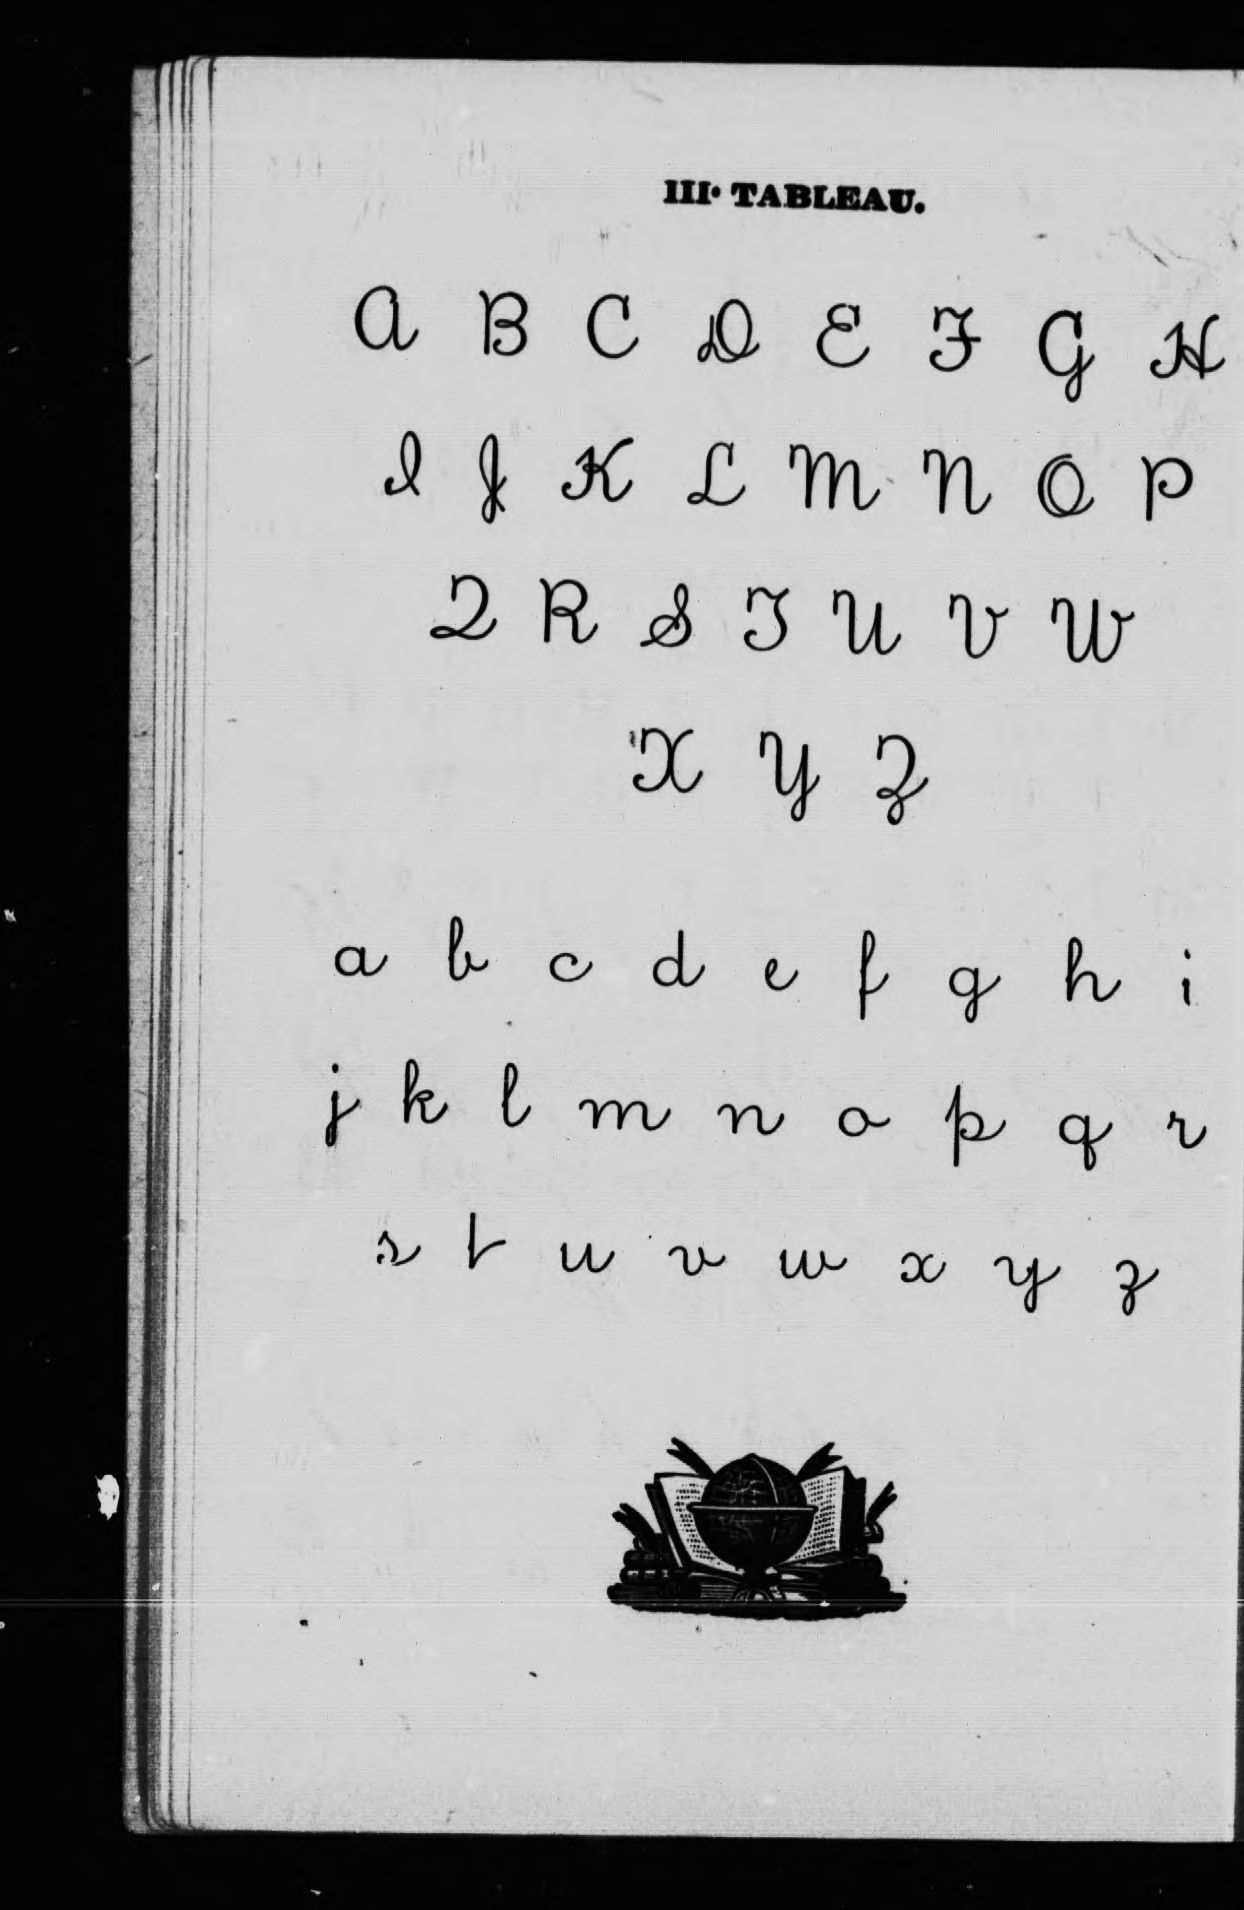 III• TABLEAU.
A B C D E F G H
I J K L M N O P
Q R S T U V W
X Y Z
a b c d e f g h i
j k l m n o p q r
s t u v w x y z